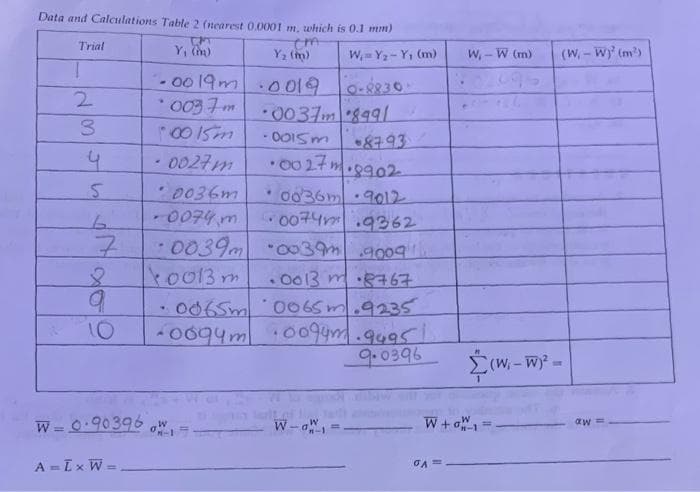 Data and Calculations Table 2 (nearest 0.0001 m, which is 0.1 mm)
Trial Y₁ (m) cm Y₂ (m) cm Wᵢ = Y₂ – Y₁ (m) Wᵢ – W̅ (m) (Wᵢ – W̅)² (m²)
1 .0019m .0019 0.8830
2 .0037m .0037m .8991
3 .0015m .0015m .8793
4 .0027m .0027m .8902
5 .0036m .0036m .9012
6 .0074m .0074m .9362
7 .0039m .0039m .9009
8 .0013m .0013m .8767
9 .0065m .0065m .9235
10 .0094m .0094m .9495
9.0396 Σ₁ⁿ (Wᵢ – W̅)² =
W̅ = 0.90396 σᵂₙ₋₁ = W̅ – σᵂₙ₋₁ = W̅ + σᵂₙ₋₁ = αw =
A = L̅ × W̅ = σA =